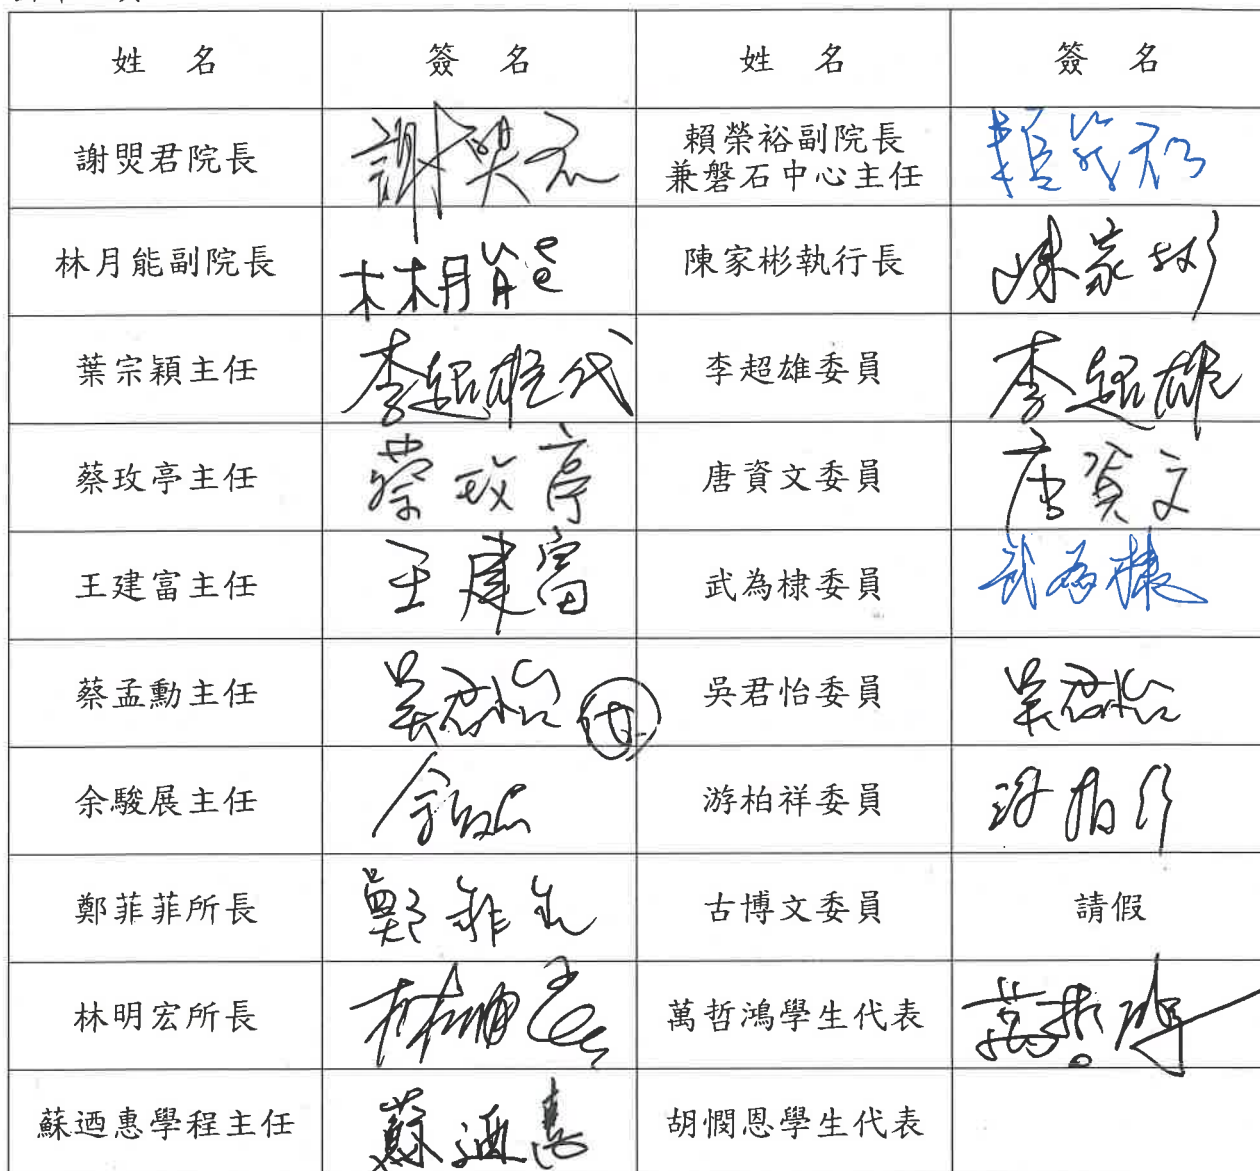 姓 名 簽 名 姓 名 簽 名
謝焸君院長 謝焸君 賴榮裕副院長 賴榮裕
兼磐石中心主任
林月能副院長 林月能 陳家彬執行長 陳家彬
葉宗穎主任 李超雄代 李超雄委員 李超雄
蔡玫亭主任 蔡玫亭 唐資文委員 唐資文
王建富主任 王建富 武為棣委員 武為棣
蔡孟勳主任 吳君怡 代 吳君怡委員 吳君怡
余駿展主任 游柏祥委員 游柏祥
鄭菲菲所長 鄭菲菲 古博文委員 請假
林明宏所長 林明宏 萬哲鴻學生代表 萬哲鴻
蘇迺惠學程主任 蘇迺惠 胡憫恩學生代表